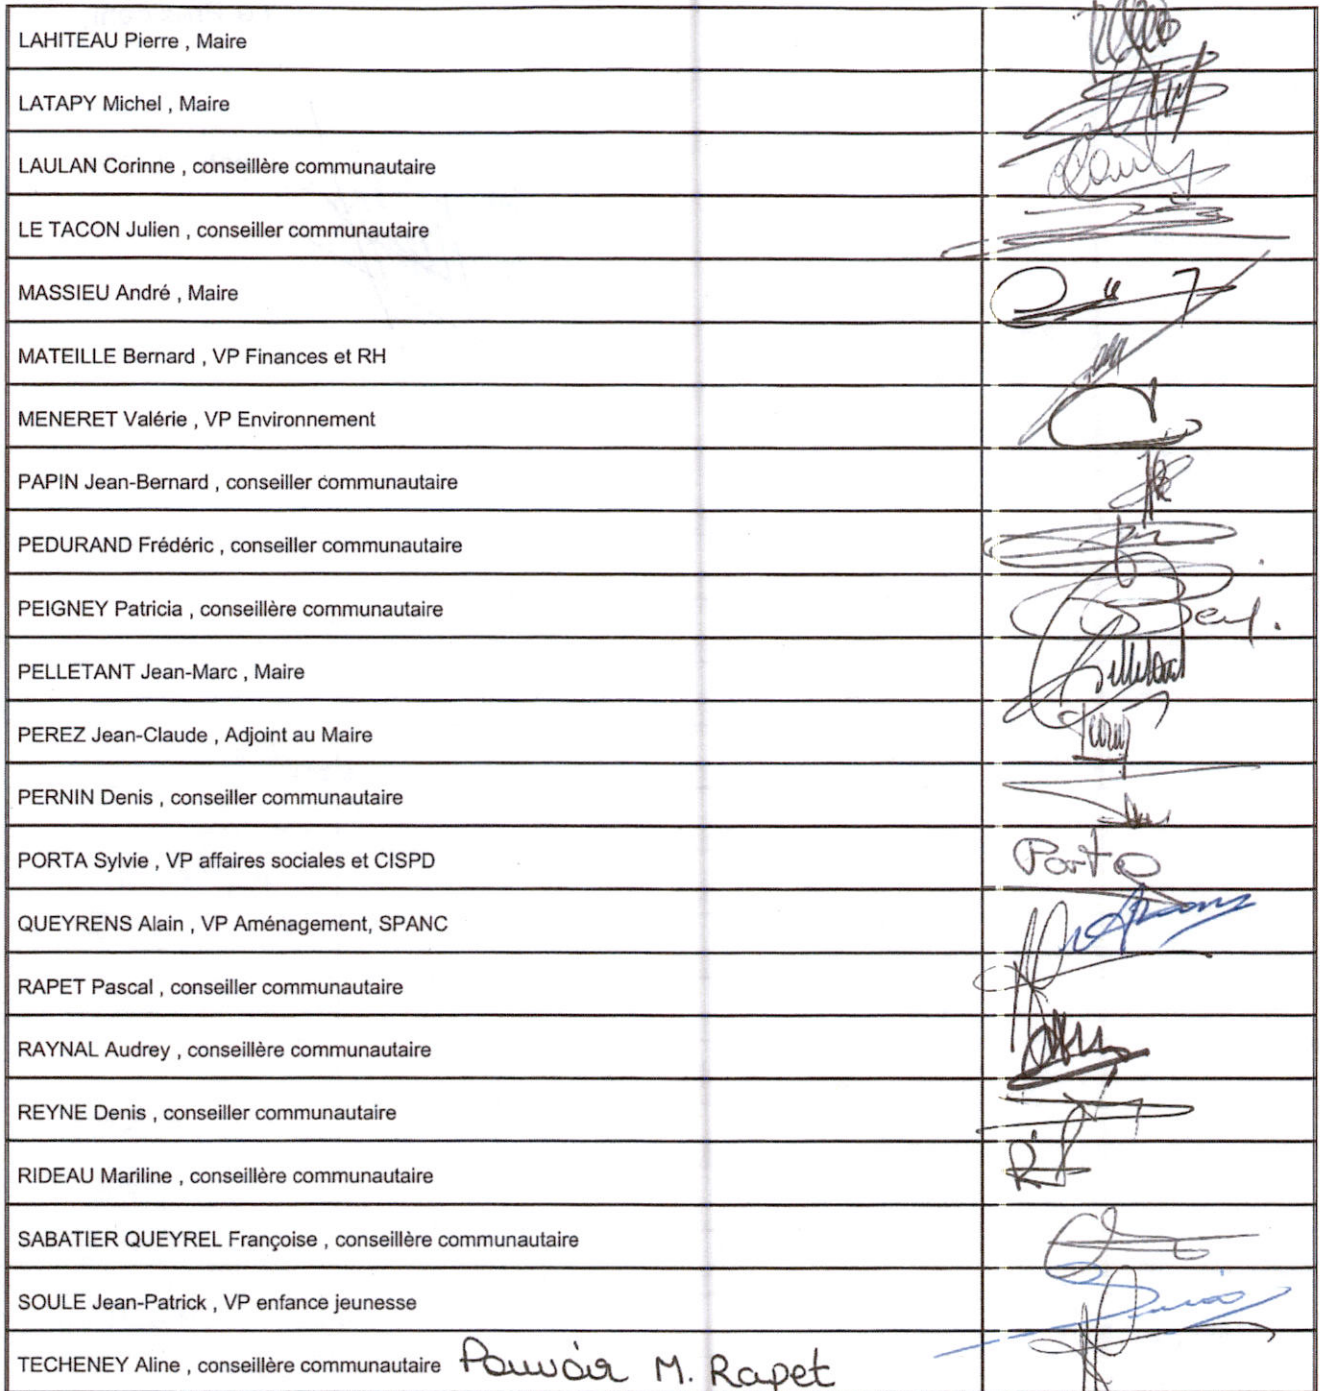 LAHITEAU Pierre , Maire
LATAPY Michel , Maire
LAULAN Corinne , conseillère communautaire
LE TACON Julien , conseiller communautaire
MASSIEU André , Maire
MATEILLE Bernard , VP Finances et RH
MENERET Valérie , VP Environnement
PAPIN Jean-Bernard , conseiller communautaire
PEDURAND Frédéric , conseiller communautaire
PEIGNEY Patricia , conseillère communautaire
PELLETANT Jean-Marc , Maire
PEREZ Jean-Claude , Adjoint au Maire
PERNIN Denis , conseiller communautaire
PORTA Sylvie , VP affaires sociales et CISPD Porta
QUEYRENS Alain , VP Aménagement, SPANC
RAPET Pascal , conseiller communautaire
RAYNAL Audrey , conseillère communautaire
REYNE Denis , conseiller communautaire
RIDEAU Mariline , conseillère communautaire
SABATIER QUEYREL Françoise , conseillère communautaire
SOULE Jean-Patrick , VP enfance jeunesse
TECHENEY Aline , conseillère communautaire Pouvoir M. Rapet